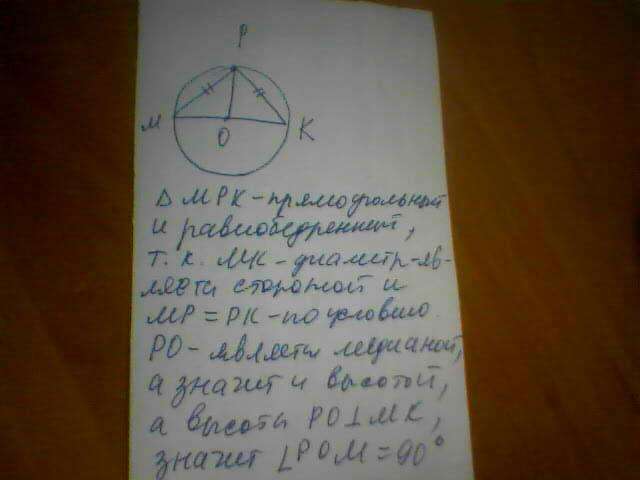 P
M
O
K
Δ МРК - прямоугольный
и равнобедренный,
т. к. МК - диаметр - яв-
ляется стороной и
МР = РК - по условию.
РО - является медианой,
а значит и высотой,
а высота РО⊥МК,
значит ∠РОМ = 90°